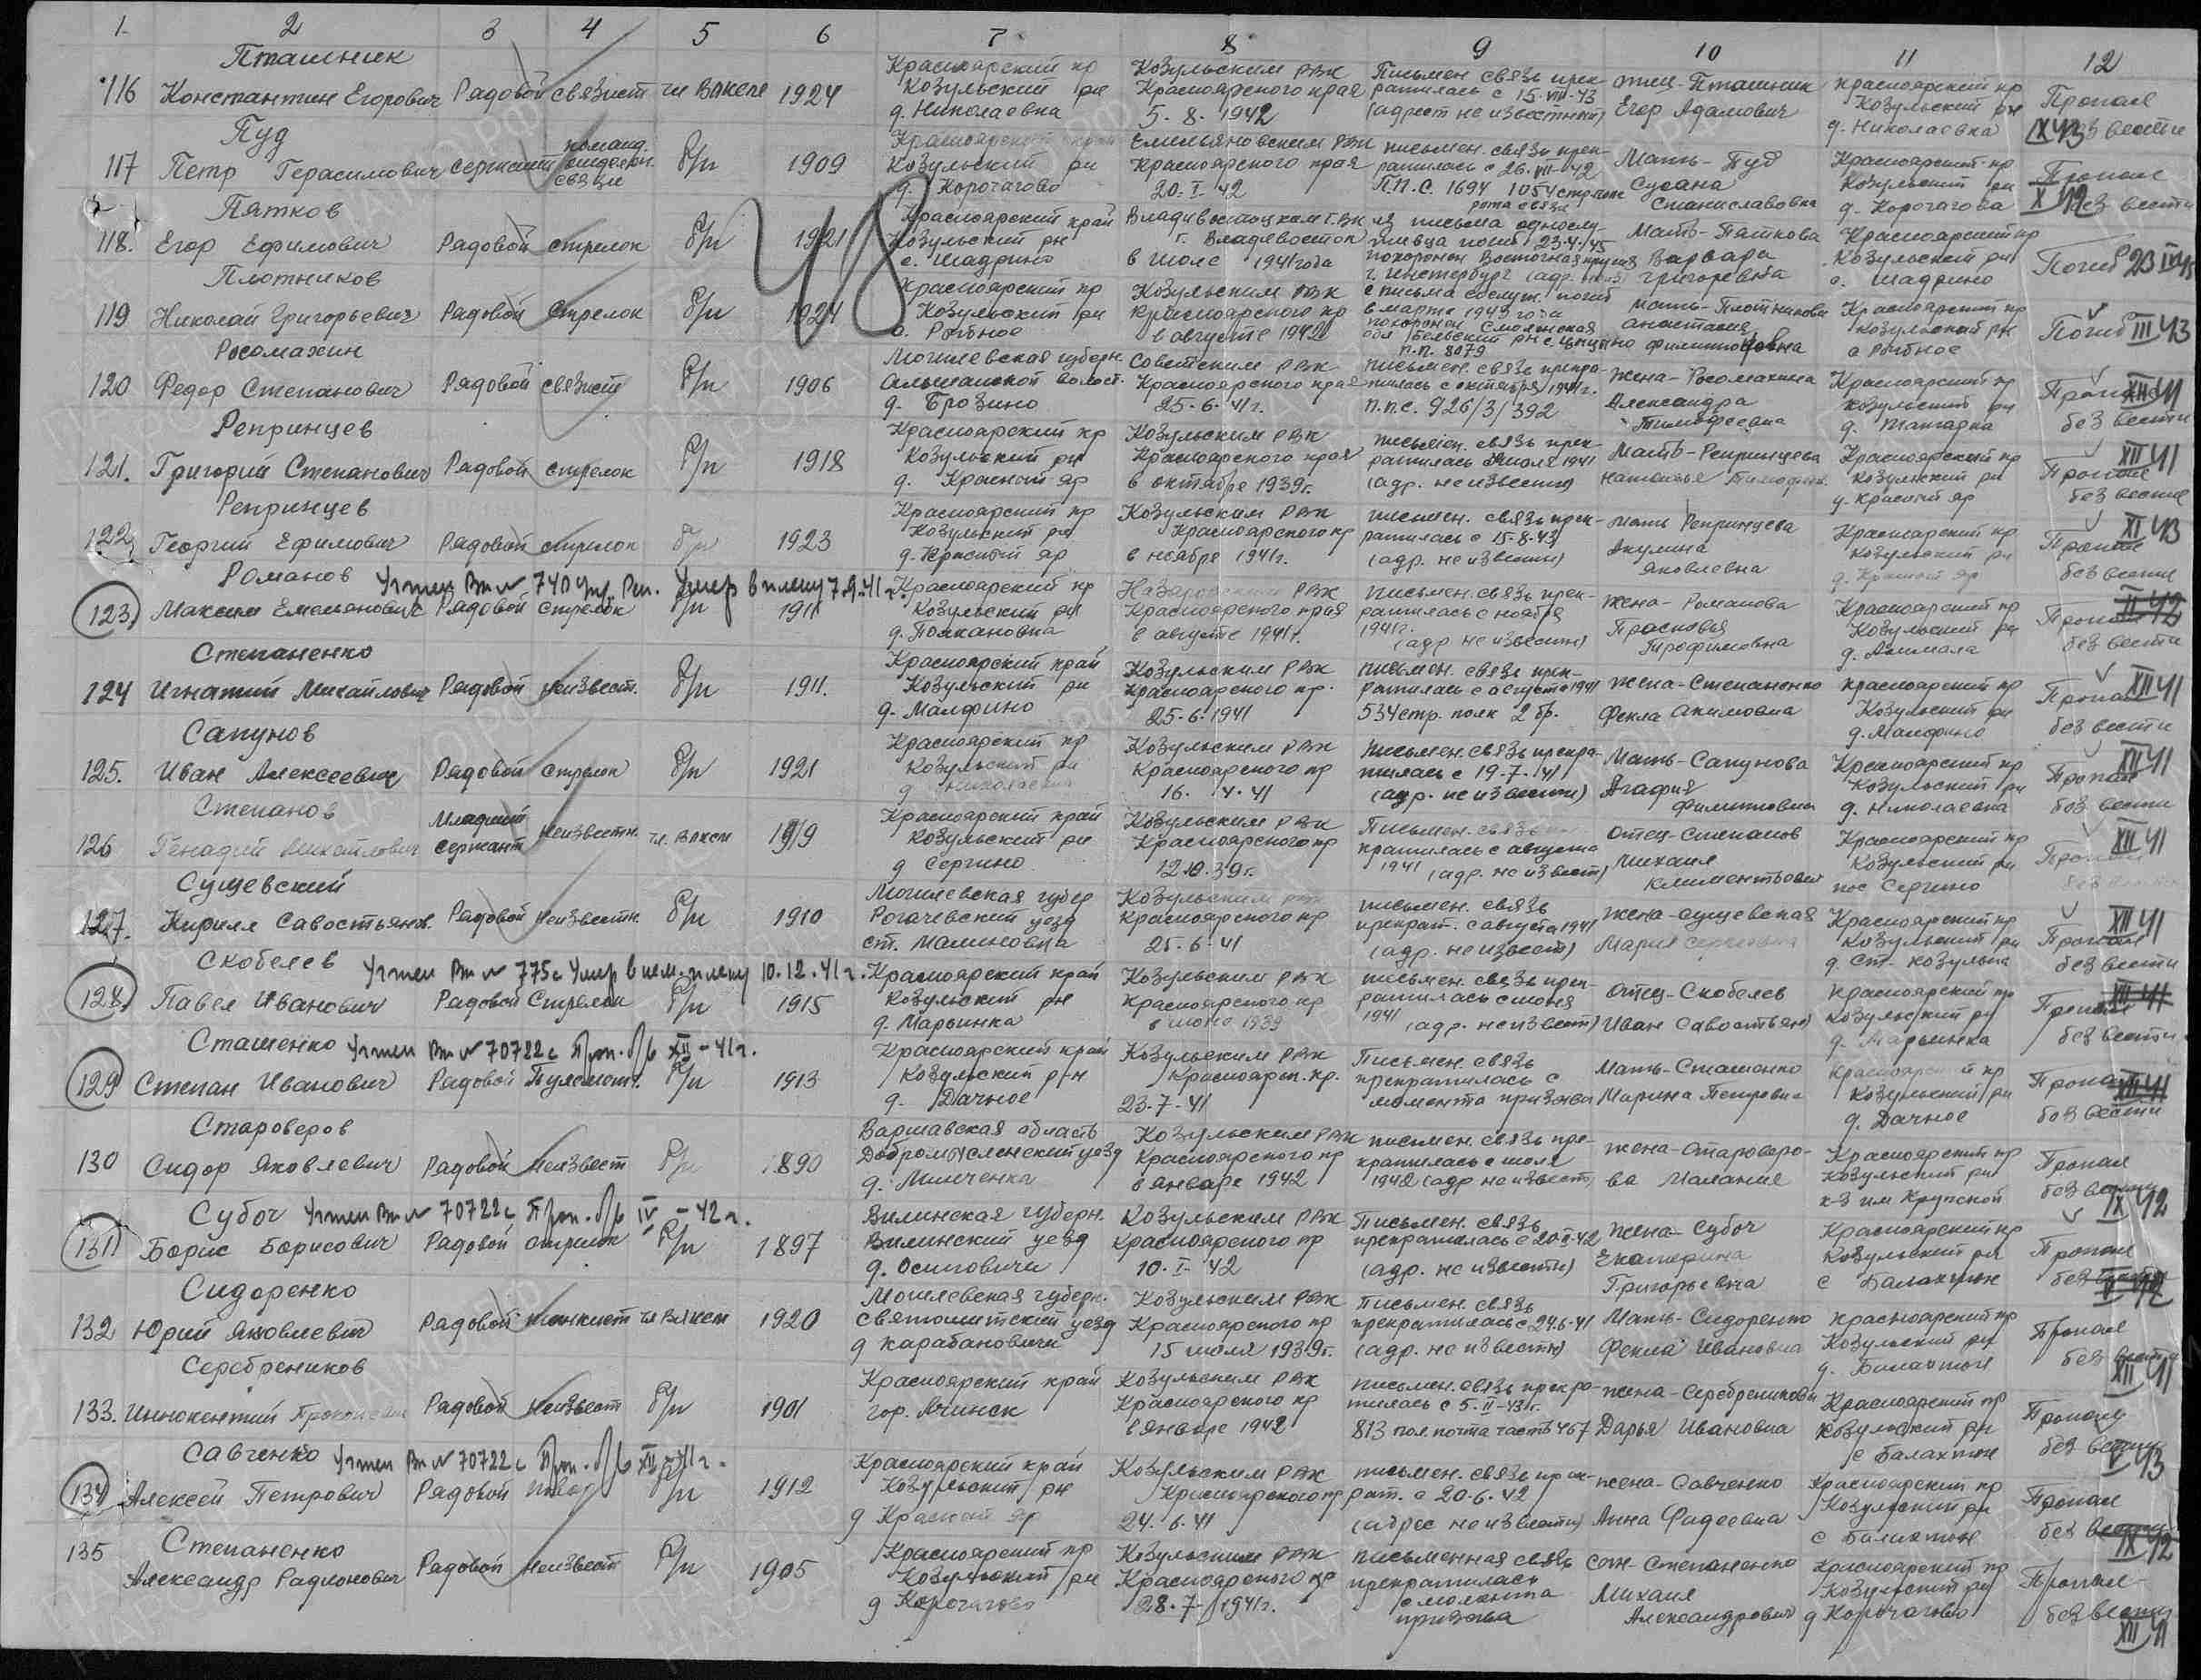 1. 2 3 4 5 6 7 8 9 10 11 12
Пташник
116 Константин Егорович Рядовой связист чл ВЛКСМ 1924
Красноярский кр
Козульский рн
д. Николаевка
Козульским РВК
Красноярского края
5. 8. 1942
Письмен. связь прек-
ратилась с 15-VIII-43
(адрест не известный)
отец-Пташник
Егор Адамович
Красноярский кр
Козульский рн
д. Николаевка
Пропал
без вести
Пуд
117 Петр Герасимович сержант
команд.
отделен.
связи
б/п 1909
Красноярский край
Козульский рн
д. Корочагово
Емельяновским РВК
Красноярского края
20. I. 42
письмен. связь прек-
ратилась с 26-VII-42
П.П.С. 1694 1054 стр полк
рота связи
Мать-Пуд
Сусана
Станиславовна
Красноярский кр
Козульский рн
д. Корочагова
Пропал
X 42 без вести
Пятков
118. Егор Ефимович Рядовой стрелок б/п 1921
Красноярский край
Козульский рн
с. Шадрино
Владивостоцким ГВК
г. Владивосток
в июле 1941 года
из письма однослу-
живца погиб 23.4.45
похоронен Восточная пруссия
г. Инстербург
Мать-Пяткова
Варвара
Григорьевна
Красноярский кр
Козульский рн
с. Шадрино
Погиб 23 IV 45
48
Плотников
119 Николай Григорьевич Рядовой стрелок б/п 1924
Красноярский кр
Козульский рн
с. Рыбное
Козульским РВК
Красноярского кр
в августе 1942
с письма сослуж. погиб
в марте 1943 года
похоронен Смоленская
обл Бельский рн
п.п. 8079
мать-Плотникова
Анастасия
Филипповна
Красноярский кр
Козульский рн
с Рыбное
Погиб III 43
Росомахин
120 Федор Степанович Рядовой связист б/п 1906
Могилевская губерн
волост.
д. Брозино
Советским РВК
Красноярского края
25-6-41г.
письмен. связь прекра-
тилась с октября 1941г.
п.п.с. 926/3/392
жена-Росомахина
Александра
Тимофеевна
Красноярский кр
Козульский рн
Пропал XII 41
без вести
Репринцев
121. Григорий Степанович Рядовой стрелок б/п 1918
Красноярский кр
Козульский рн
д. Красный яр
Козульским РВК
Красноярского края
в октябре 1939г.
письмен. связь прек-
ратилась июля 1941
(адр. не известн)
Мать-Репринцева
Наталья Тимофеев.
Красноярский кр
Козульский рн
д. Красный яр
XII 41
Пропал
без вести
Репринцев
122. Георгий Ефимович Рядовой стрелок б/п 1923
Красноярский кр
Козульский рн
д. Красный яр
Козульским РВК
Красноярского кр
в ноябре 1941г.
письмен. связь прек-
ратилась с 15-8-43
(адр. не известн)
мать Репринцева
Акулина
Яковлевна
Красноярский кр
Козульский рн
д. Красный яр
XI 43
Пропал
без вести
Романов Учтен Вх № 740 Умер в плену 7.9.41г.
123 Максим Емельянович Рядовой стрелок б/п 1911
Красноярский кр
Козульский рн
д. Полкановка
Назаровским РВК
Красноярского края
в августе 1941г.
письмен. связь прек-
ратилась с ноября
1941г.
(адр не известн)
жена-Романова
Прасковья
Трофимовна
Красноярский кр
Козульский рн
II 42
Пропал
без вести
Степаненко
124 Игнатий Михайлович Рядовой неизвест. б/п 1911.
Красноярский край
Козульский рн
д. Малфино
Козульским РВК
Красноярского кр.
25-6-1941
письмен. связь прек-
ратилась с августа 1941
534 стр. полк 2 бр.
жена-Степаненко
Фекла Акимовна
Красноярский кр
Козульский рн
д. Малфино
XII 41
Пропал
без вести
Сапунов
125. Иван Алексеевич Рядовой стрелок б/п 1921
Красноярский кр
Козульский рн
д Николаевка
Козульским РВК
Красноярского кр
16. 4. 41
письмен. связь прекра-
тилась с 19-7-41
(адр. не известн)
Мать-Сапунова
Агафия
Филипповна
Красноярский кр
Козульский рн
д. Николаевка
XII 41
Пропал
без вести
Степанов
126 Генадий Михайлович
Младший
сержант
неизвестн. чл. ВЛКСМ 1919
Красноярский край
Козульский рн
д Сергино
Козульским РВК
Красноярского кр
12.10.39г.
Письмен. связь
кратилась с августа
1941 (адр. не извест)
отец-Степанов
Михаил
Климентьевич
Красноярский кр
Козульский рн
пос Сергино
XII 41
Пропал
без вести
Сущевский
127. Кирилл Савостьян. Рядовой неизвестн. б/п 1910
Могилевская губер
Рогачевский уезд
ст. Малиновка
Козульским РВК
Красноярского кр
25-6-41
письмен. связь
прекрат. с августа 1941
(адр. не извест)
жена-Сущевская
Мария Сергеевна
Красноярский кр
Козульский рн
д. ст. Козулька
XII 41
Пропал
без вести
Скобелев Учтен Вх № 775с Умер в нем. плену 10.12.41г.
128 Павел Иванович Рядовой Стрелок б/п 1915
Красноярский край
Козульский рн
д. Марьинка
Козульским РВК
Красноярского кр
в июне 1939
письмен. связь прек-
ратилась с июня
1941 (адр. не извест)
отец-Скобелев
Иван Савостьян
Красноярский кр
Козульский рн
д. Марьинка
XII 41
Пропал
без вести
Сташенко Учтен Вх № 70722с Проп. б/в XII-41г.
129 Степан Иванович Рядовой Пулемет. б/п 1913
Красноярский край
Козульский р-н
д. Дачное
Козульским РВК
Красноярск. кр.
23-7-41
Письмен. связь
прекратилась с
момента призыва
Мать-Сташенко
Марина Петровна
Красноярский кр
Козульский рн
д. Дачное
Пропал XII 41
без вести
Староверов
130 Сидор Яковлевич Рядовой неизвест б/п 1890
Варшавская область
уезд
д. Минченка
Козульским РВК
Красноярского кр
в январе 1942
письмен. связь пре-
кратилась с июля
1942 (адр не извест)
жена-Староверо-
ва Малания
Красноярский кр
Козульский рн
к-з им Крупской
Пропал
без вести
IX 42
Субоч Учтен Вх № 70722с Проп. б/в IV-42г.
131 Борис Борисович Рядовой стрелок б/п 1897
Вилинская губерн.
Вилинский уезд
д. Осиповичи
Козульским РВК
Красноярского кр
10-I-42
Письмен. связь
прекратилась с 20-II-42
(адр. не известн)
жена-Субоч
Екатерина
Григорьевна
Красноярский кр
Козульский рн
с Балахтон
Пропал
без вести
Сидоренко
132 Юрий Яковлевич Рядовой танкист чл ВЛКСМ 1920
Могилевская губерн.
уезд
д Карабановичи
Козульским РВК
Красноярского кр
15 июля 1939г.
Письмен. связь
прекратилась с 24.6-41
(адр. не известн)
Мать-Сидоренко
Фекла Ивановна
Красноярский кр
Козульский рн
д. Балахтон
Пропал
без вести
XII 41
Серебреников
133. Иннокентий Прокопьевич Рядовой неизвест б/п 1901
Красноярский край
гор. Ачинск
Козульским РВК
Красноярского кр
в январе 1942
письмен. связь прекра-
тилась с 5-II-43г.
813 пол. почта часть 467
жена-Серебреникова
Дарья Ивановна
Красноярский кр
Козульский рн
с Балахтон
Пропал
без вести
V 43
Савченко Учтен Вх № 70722с Проп. б/в XII-41г.
134 Алексей Петрович Рядовой повар б/п 1912
Красноярский край
Козульский рн
д Красный яр
Козульским РВК
Красноярского кр
24. 6. 41
письмен. связь прек-
рат. с 20-6-42
(адрес не известн)
жена-Савченко
Анна Фадеевна
Красноярский кр
Козульский рн
с Балахтон
Пропал
без вести
IX 42
135 Степаненко
Александр Радионович Рядовой неизвест б/п 1905
Красноярский кр
Козульский рн
д Корочагово
Козульским РВК
Красноярского кр
28-7-1941г.
письменная связь
прекратилась
с момента
призыва
сын-Степаненко
Михаил
Александрович
Красноярский кр
Козульский рн
д Корочагово
Пропал-
без вести
XII 41